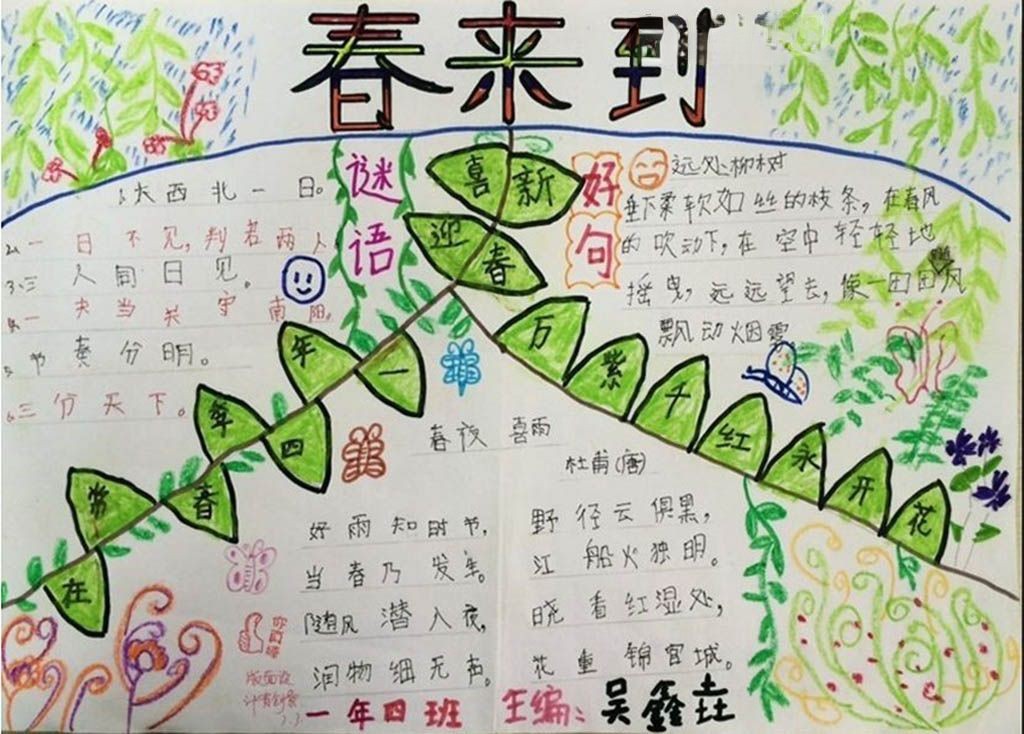 春来到
谜语
1.大西北一日。
2.一日不见,判若两人。
3.三人间日见。
4.一夫当关守南阳。
5.节奏分明。
6.三分天下。
喜迎新春
一年四春年常在
万紫千红永开花
好句
远处柳树
垂下柔软如丝的枝条,在春风
的吹动下,在空中轻轻地
摇曳,远远望去,像一团团风
飘动烟雾
春夜喜雨
杜甫(唐)
好雨知时节,
当春乃发生。
随风潜入夜,
润物细无声。
野径云俱黑,
江船火独明。
晓看红湿处,
花重锦官城。
你真棒
版面设
计有创意
3.3
一年四班 主编:吴鑫垚